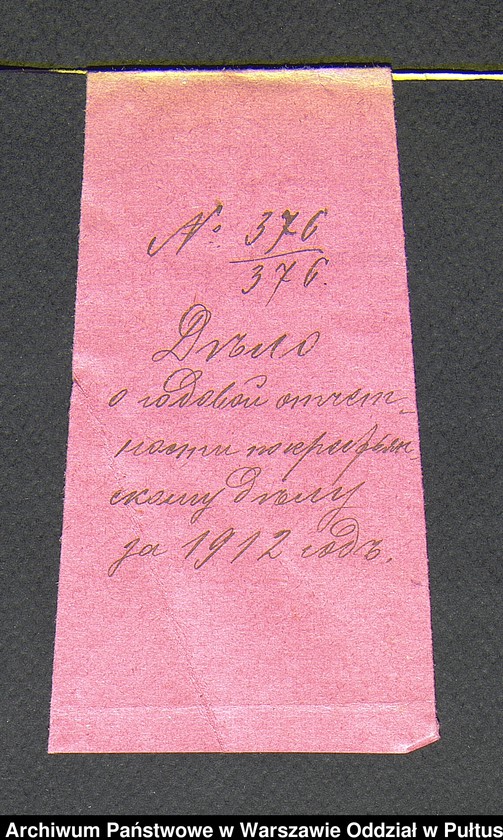 № 376
376.
Дѣло
о годовой отчет-
ности по крестьян
скому дѣлу
за 1912 годъ.
Archiwum Państwowe w Warszawie Oddział w Pułtus